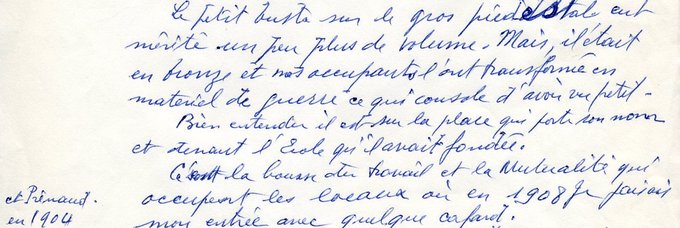 Le petit buste sur le gros piédestale eut
mérité un peu plus de volume. Mais, il était
en bronze et nos occupants l'ont transformé en
materiel de guerre ce qui console d'avoir vu petit -
Bien entendu il est sur la place qui porte son nom
et devant l'Ecole qu'il avait fondée.
C'est la bourse du travail et la Mutualité qui
occupent les locaux où en 1908 je faisais
mon entrée avec quelque cafard.
et Prénaud.
en 1904